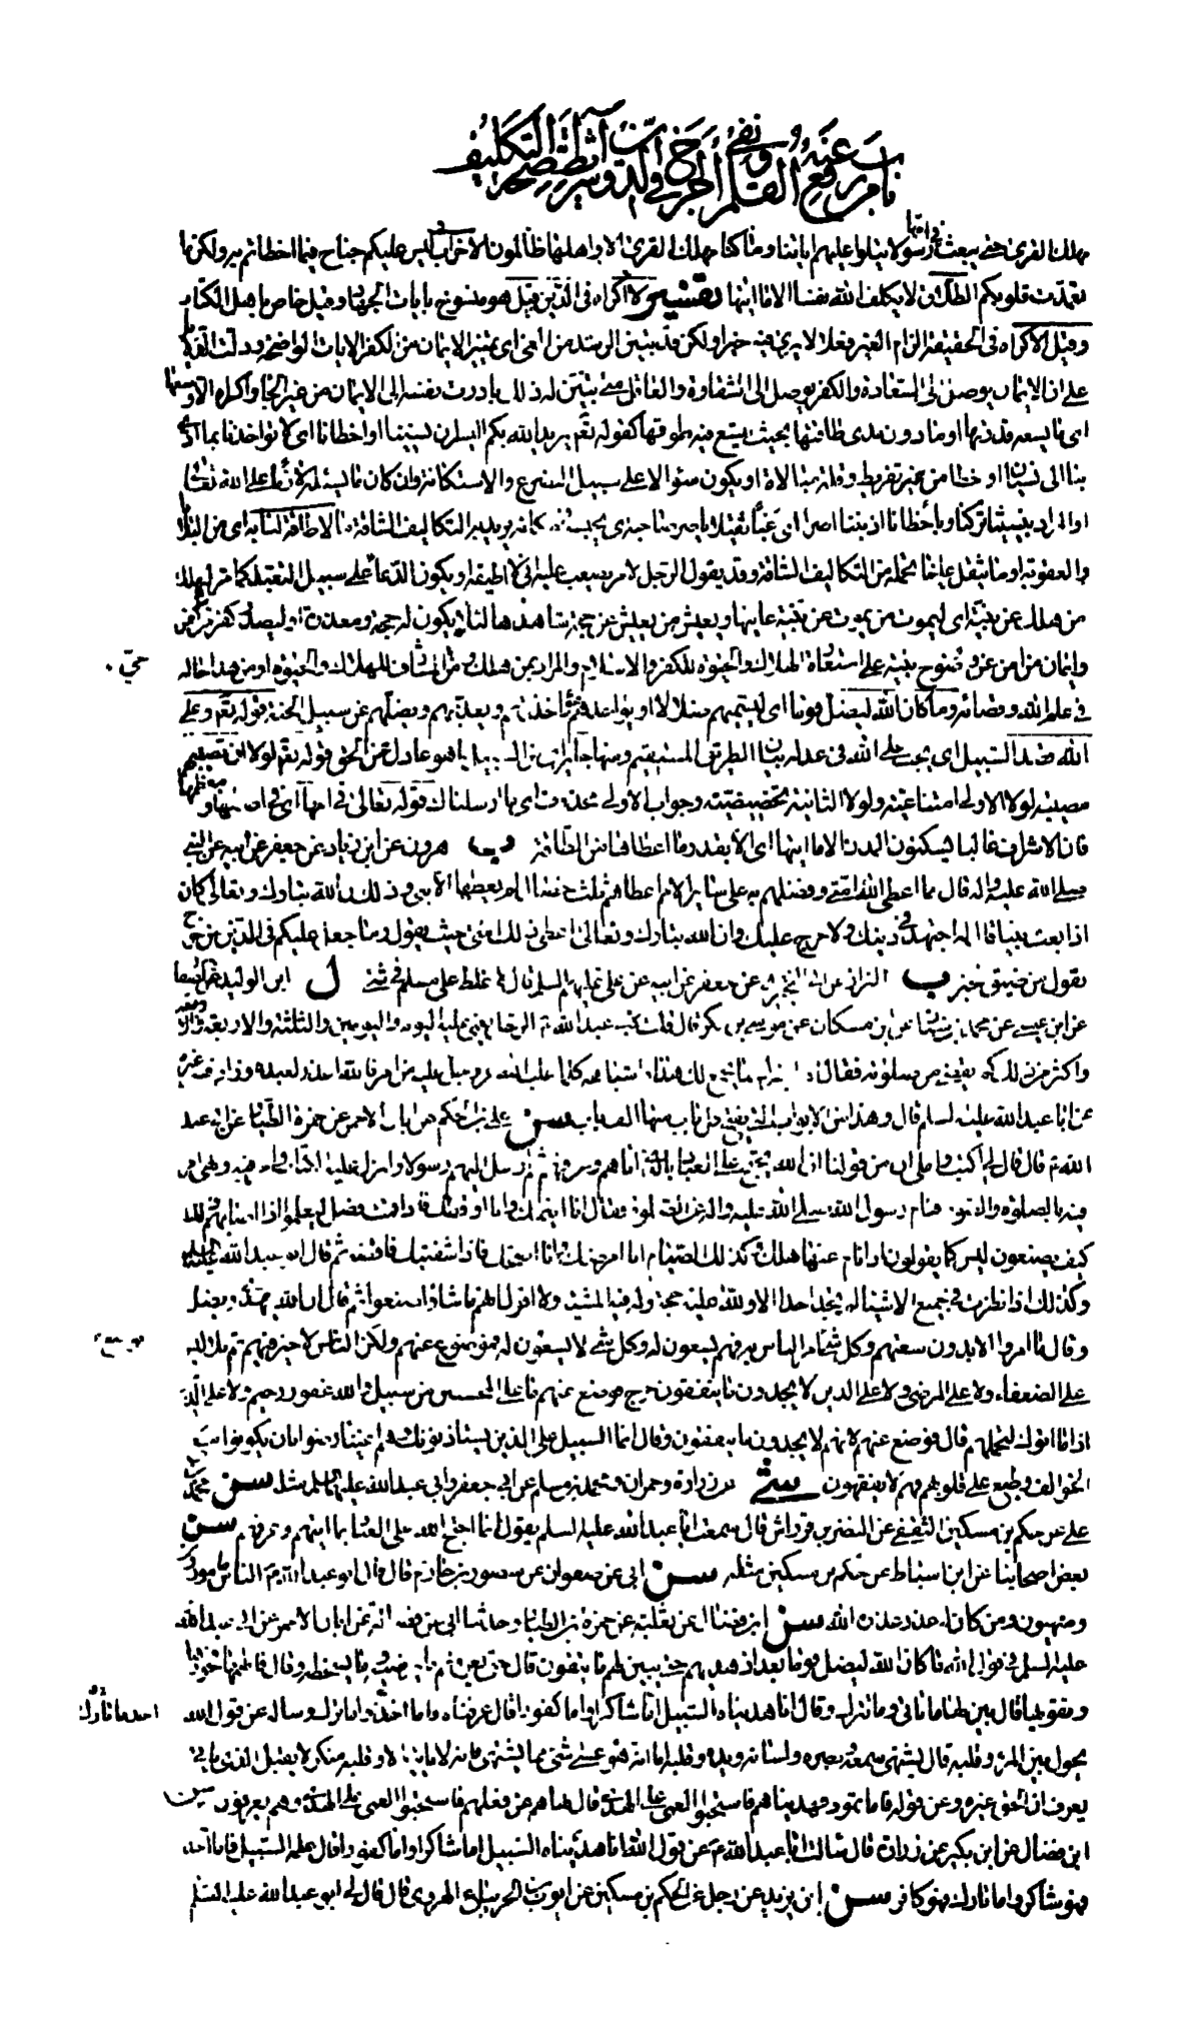 باب من رفع عنه القلم ونفي الحرج في الدين وشرائط صحة التكليف
مهلك القرى حتى يبعث في امها رسولا يتلوا عليهم اياتنا وما كنا مهلك القرى الا واهلها ظالمون الاحزاب ليس عليكم جناح فيما اخطاتم به ولكن ما
تعمدت قلوبكم الطلاق لا يكلف الله نفسا الا ما اتيها تفسير لا اكراه في الدين قيل هو منسوخ بايات الجهاد وقيل خاص باهل الكتاب
وقيل الاكراه في الحقيقة الزام الغير فعلا لا يرى فيه خيرا ولكن قد تبين الرشد من الغي اي تميز الايمان من الكفر بالايات الواضحة ودلت الدلائل
على ان الايمان يوصل الى السعادة والكفر يوصل الى الشقاوة والعاقل متى تبين له ذلك بادرت نفسه الى الايمان من غير الجاء واكراه الا وسعها
اي ما يسعه قدرتها او ما دون مدى طاقتها بحيث يتسع فيه طوقها كقوله تعالى يريد الله بكم اليسر ان نسينا او اخطانا اي لا تؤاخذنا بما ادى
بنا الى نسيان او خطا من تفريط وقلة مبالاة او يكون سؤالا على سبيل التضرع والاستكانة وان كان ما يسئله لازما على الله تعالى
او المراد بنسينا تركنا وباخطانا اذنبنا اصرا اي عبأ ثقيلا ياصر صاحبه اي يحبسه في مكانه يريد به التكاليف الشاقة ما لا طاقة لنا به اي من البلاء
والعقوبة او ما يثقل علينا تحمله من التكاليف الشاقة وقد يقول الرجل لامر يصعب عليه اني لا اطيقه او يكون الدعاء على سبيل التعبد كما مر ليهلك
من هلك عن بينة اي ليموت من يموت عن بينة عاينها ويعيش من يعيش عن حجة شاهدها لئلا يكون له حجة ومعذرة او ليصدر كفر من كفر
وايمان من امن عن وضوح بينة على استعارة الهلاك والحيوة للكفر والاسلام والمراد بمن هلك ومن حي المشارف للهلاك والحيوة او من هذا حاله
حي
في علم الله وقضائه وما كان الله ليضل قوما اي ليسميهم ضلالا او يؤاخذهم مؤاخذتهم ويعذبهم ويضلهم عن سبيل الجنة قوله تعالى وعلى
الله قصد السبيل اي يجب على الله في عدله بيان الطريق المستقيم ومنها جائر اي من السبيل ما هو عادل عن الحق قوله تعالى لولا ان تصيبهم
مصيبة لولا الاولى امتناعية ولولا الثانية تحضيضية وجواب الاولى محذوف اي ما ارسلناك قوله تعالى في امها اي في اصلها ومعظمها
فان الاشراف غالبا يسكنون المدن الا ما اتيها اي الا بقدر ما اعطاها من الطاقة ب هرون عن ابن زياد عن جعفر عن ابيه عن النبي
صلى الله عليه واله قال مما اعطى الله امتي وفضلهم به على سائر الامم اعطاهم ثلث خصال لم يعطها الا نبي وذلك ان الله تبارك وتعالى كان
اذا بعث نبيا قال له اجتهد في دينك ولا حرج عليك وان الله تبارك وتعالى اعطى ذلك امتي حيث يقول وما جعل عليكم في الدين من حرج
يقول من ضيق خبر ب البزاز عن ابي البختري عن جعفر عن ابيه عن علي عليهم السلم قال لا غلظ على مسلم في شئ ل ابن الوليد
عن ابن عيسى عن محمد بن سنان عن ابن مسكان عن موسى بن بكر قال قلت لابي عبد الله ع الرجل يغمى عليه اليوم واليومين والثلثة والاربعة
واكثر من ذلك كم يقضي من صلوته فقال الا اخبرك بما يجمع لك هذا واشباهه كلما غلب الله عز وجل عليه من امر فالله اعذر لعبده وزاد فيه غيره
ان ابا عبد الله عليه السلم قال وهذا من الابواب التي يفتح كل باب منها الف باب سن علي بن الحكم عن ابان الاحمر عن حمزة الطيار عن ابي عبد
الله ع قال قال لي اكتب فاملى ان من قولنا ان الله يحتج على العباد بالذي اتاهم وعرفهم ثم ارسل اليهم رسولا وانزل عليه الكتاب وامر فيه ونهى امر
فيه بالصلوة والصوم فنام رسول الله صلى الله عليه واله عن الصلوة فقال انا انيمك وانا اوقظك فاذا قمت فصل ليعلموا اذا اصابهم ذلك
كيف يصنعون ليس كما يقولون اذا نام عنها هلك وكذلك الصيام انا امرضك وانا اصحك فاذا شفيتك فاقضه ثم قال ابو عبد الله عليه السلم
وكذلك اذا نظرت في جميع الاشياء لم تجد احدا الا ولله عليه حجة وله فيه المشية ولا اقول انهم ما شاؤا صنعوا ثم قال ان الله يهدي ويضل
وقال ما امروا الا بدون سعتهم وكل شئ امر الناس به فهم يسعون له وكل شئ لا يسعون له فموضوع عنهم ولكن الناس لا خير فيهم ثم تلا ليس
على الضعفاء ولا على المرضى ولا على الذين لا يجدون ما ينفقون حرج فوضع عنهم ما على المحسنين من سبيل والله غفور رحيم ولا على الذين
اذا ما اتوك لتحملهم قال فوضع عنهم لانهم لا يجدون ما ينفقون وقال انما السبيل على الذين يستاذنونك وهم اغنياء رضوا بان يكونوا مع
الخوالف وطبع على قلوبهم فهم لا يفقهون شئ عن زرارة وحمران ومحمد بن مسلم عن ابي جعفر وابي عبد الله عليهما السلم مثله سن محمد بن
علي عن حكم بن مسكين الثقفي عن النضر بن قرواش قال سمعت ابا عبد الله عليه السلم يقول انما احتج الله على العباد بما اتيهم وعرفهم سن
بعض اصحابنا عن ابن اسباط عن حكم بن مسكين مثله سن ابي عن صفوان عن منصور بن حازم قال قال ابو عبد الله ع الناس مامورون
ومنهيون ومن كان له عذر عذره الله سن ابن فضال عن ثعلبة عن حمزة بن الطيار وحدثنا ابي عن فضالة عن ابان الاحمر عن ابي عبد الله
عليه السلم في قول الله وما كان الله ليضل قوما بعد اذ هديهم حتى يبين لهم ما يتقون قال حتى يعرفهم ما يرضيه وما يسخطه وقال فالهمها فجورها
وتقويها قال بين لها ما تاتي وما تترك وقال انا هديناه السبيل اما شاكرا واما كفورا قال عرفناه فاما اخذ واما ترك وساله عن قول الله
يحول بين المرء وقلبه قال يشتهي سمعه وبصره ولسانه ويده وقلبه اما انه هو عسى شئ مما يشتهي فانه لا ياتيه الا وقلبه منكر لا يقبل الذي ياتي
يعرف ان الحق غيره وعن قوله فاما ثمود فهديناهم فاستحبوا العمى على الهدى قال نهاهم عن فعلهم فاستحبوا العمى على الهدى وهم يعرفون سن
ابن فضال عن ابن بكير عن زرارة قال سالت ابا عبد الله ع عن قول الله انا هديناه السبيل اما شاكرا واما كفورا قال علم السبيل فاما اخذ
فهو شاكر واما تارك فهو كافر سن ابن يزيد عن رجل عن الحكم بن مسكين عن ايوب بن الحر بياع الهروي قال قال لي ابو عبد الله عليه السلم